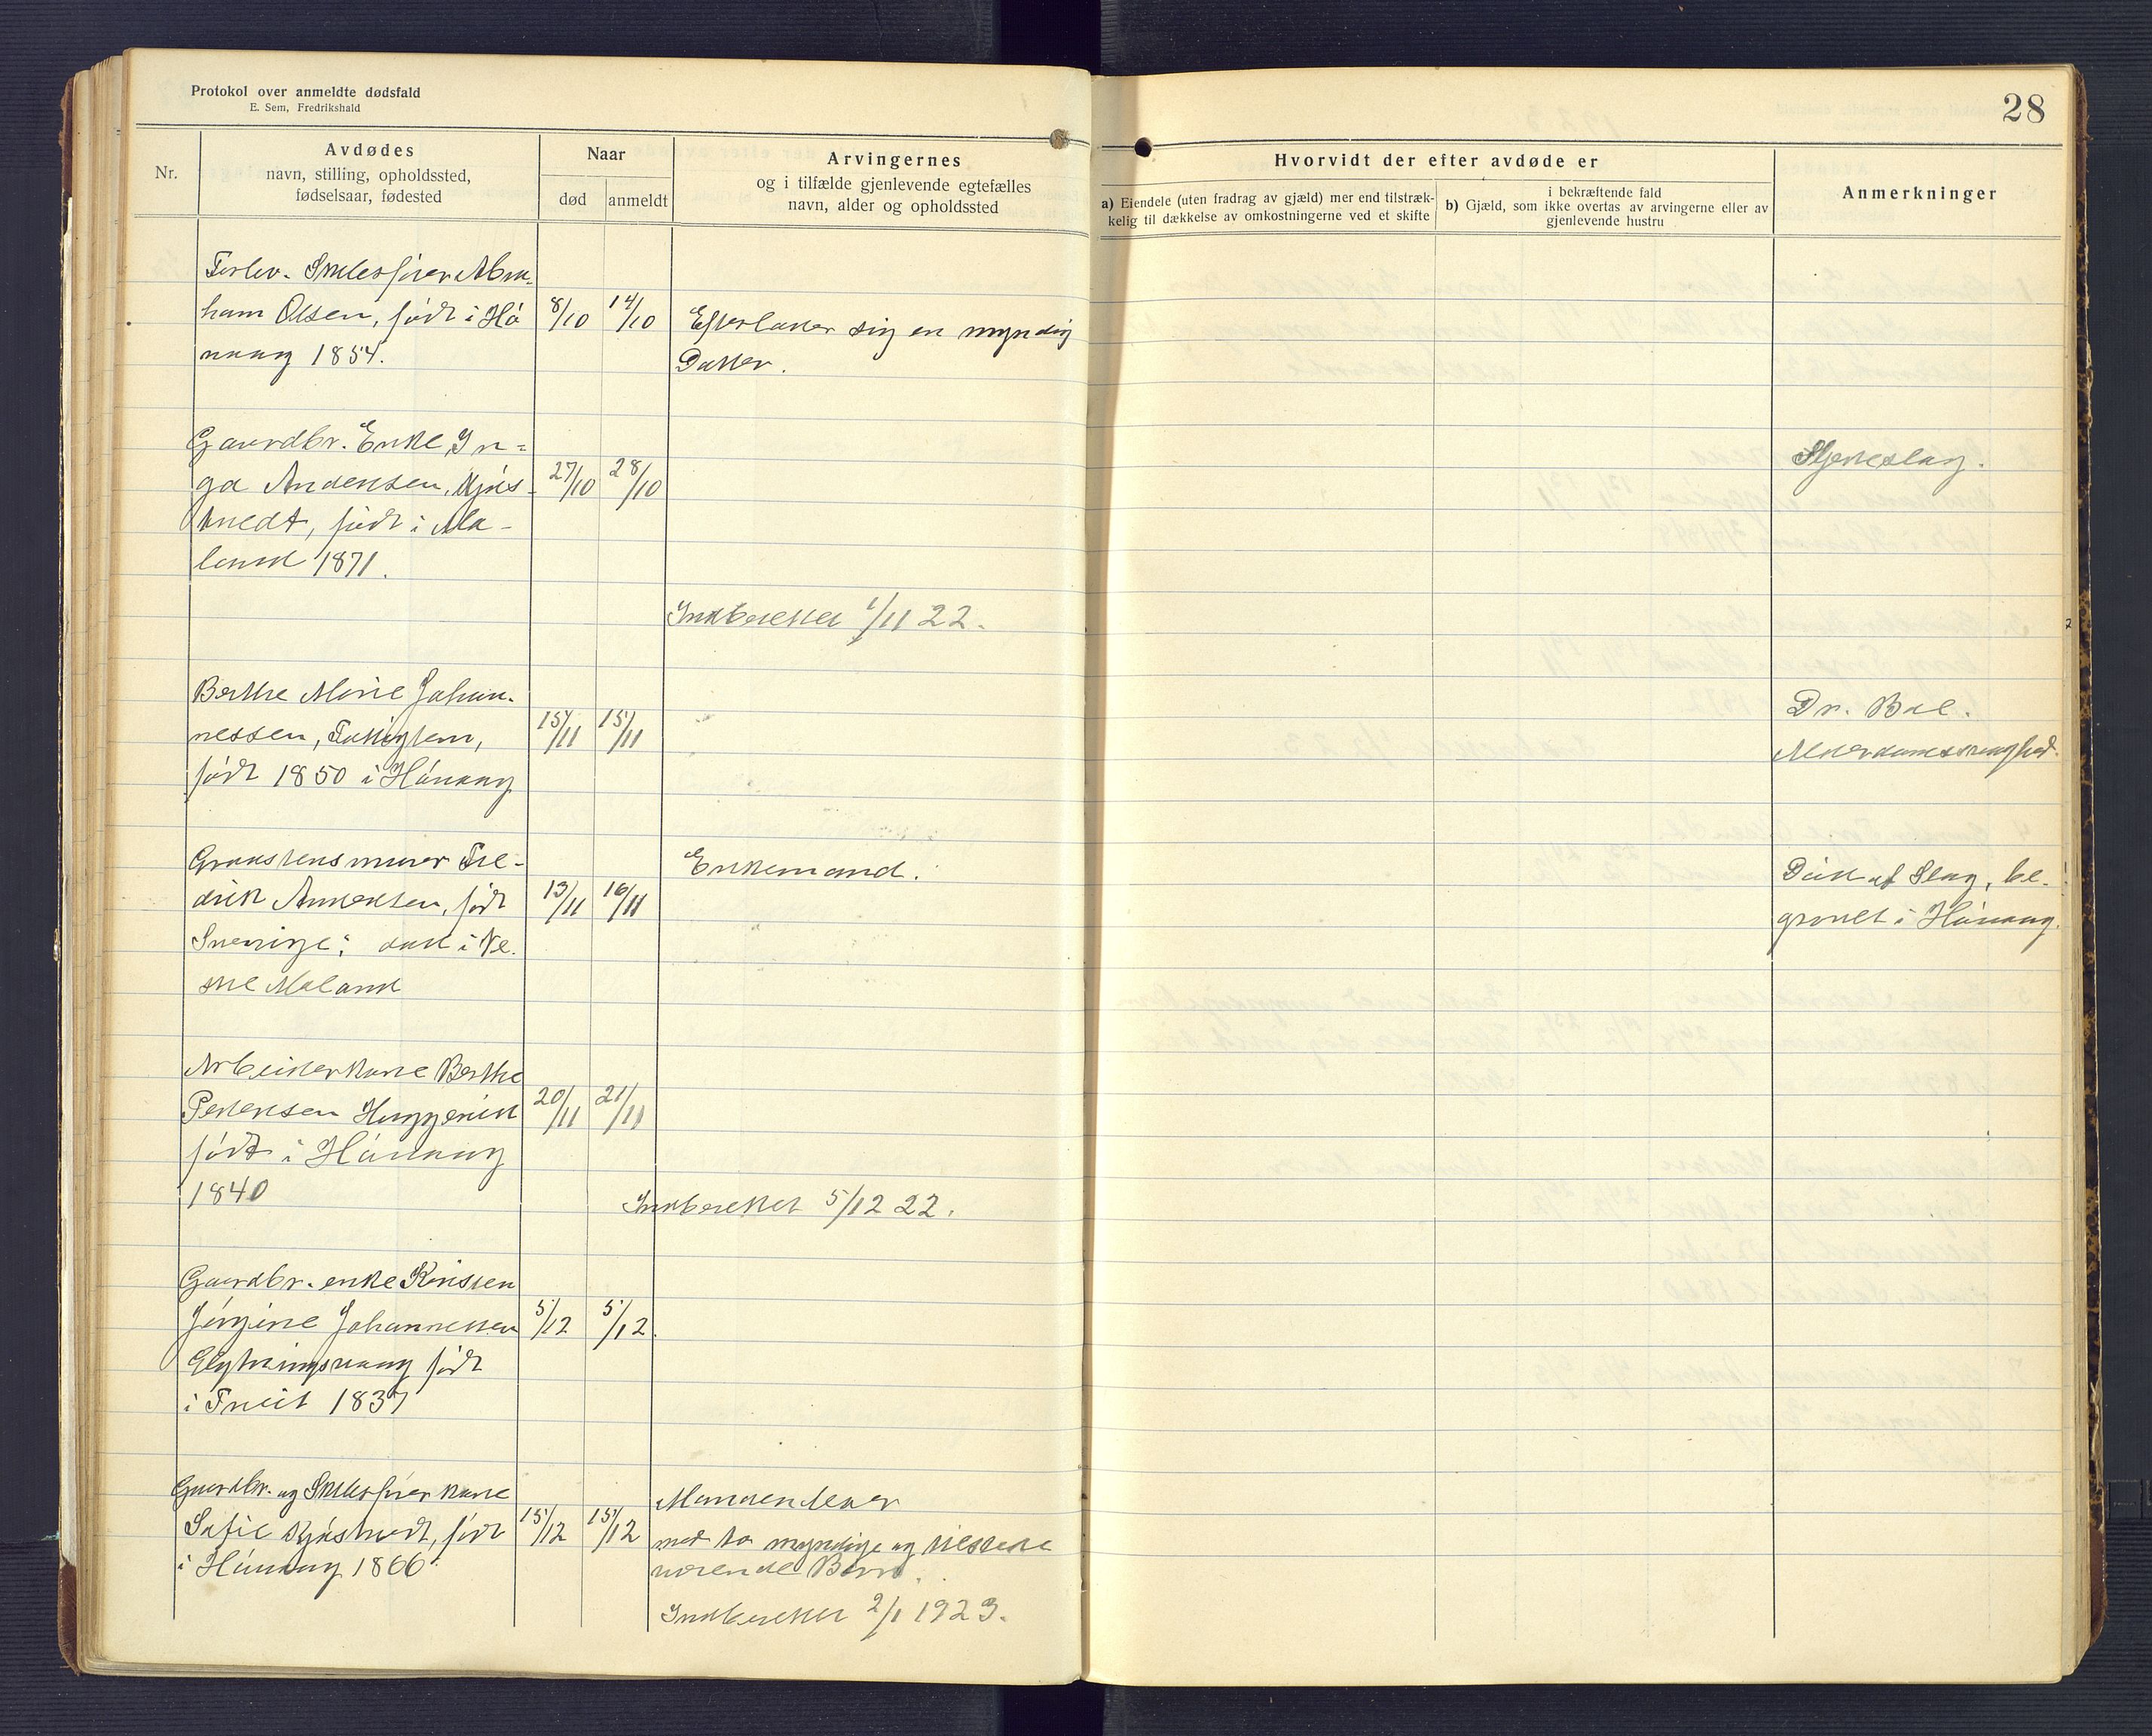 Protokol over anmeldte dødsfald
E. Sem, Fredrikshald
28
Nr.
Avdødes
navn, stilling, opholdssted,
fødselsaar, fødested
Naar
død
anmeldt
Arvingernes
og i tilfælde gjenlevende egtefælles
navn, alder og opholdssted
Hvorvidt der efter avdøde er
a) Eiendele (uten fradrag av gjæld) mer end tilstræk-
kelig til dækkelse av omkostningerne ved et skifte
i bekræftende fald
b) Gjæld, som ikke overtas av arvingerne eller av
gjenlevende hustru
Anmerkninger
Forhv. Skibsfører Abra-
ham Olsen, født i Hö
vaag 1854.
8/10 14/10
Efterlater sig en myndig
Datter.
Gaardbr. Enke In=
ga Andersen, Kjøs-
tvedt, født i Mo-
land 1871.
27/10 28/10
Hjerteslag.
Indberettet 1/11 22.
Berthe Marie Johan-
nessen, Fattiglem,
født 1850 i Hövaag
15/11 15/11
Dr. Boe.
Alderdomssvaghed.
Graastensmurer Fre-
drik Andersen, født
Sverige; død i Ve-
stre Moland
13/11 16/11
Enkemand.
Død af Slag, be-
gravet i Hövaag.
Arbeiderkone Berthe
Pedersen
født i Hövaag
1840
20/11 21/11
Indberettet 5/12 22.
Gaardbr. enke Kirsten
Jörgine Johannessen
født
i Tveit 1837
5/12 5/12
Gaardbr. og Skibsfører kone
Sofie Kjöstvedt, født
i Hövaag 1866.
15/12 15/12
Manden lever
med to myndige og tilstede
værende Børn.
Indberettet 2/1 1923.